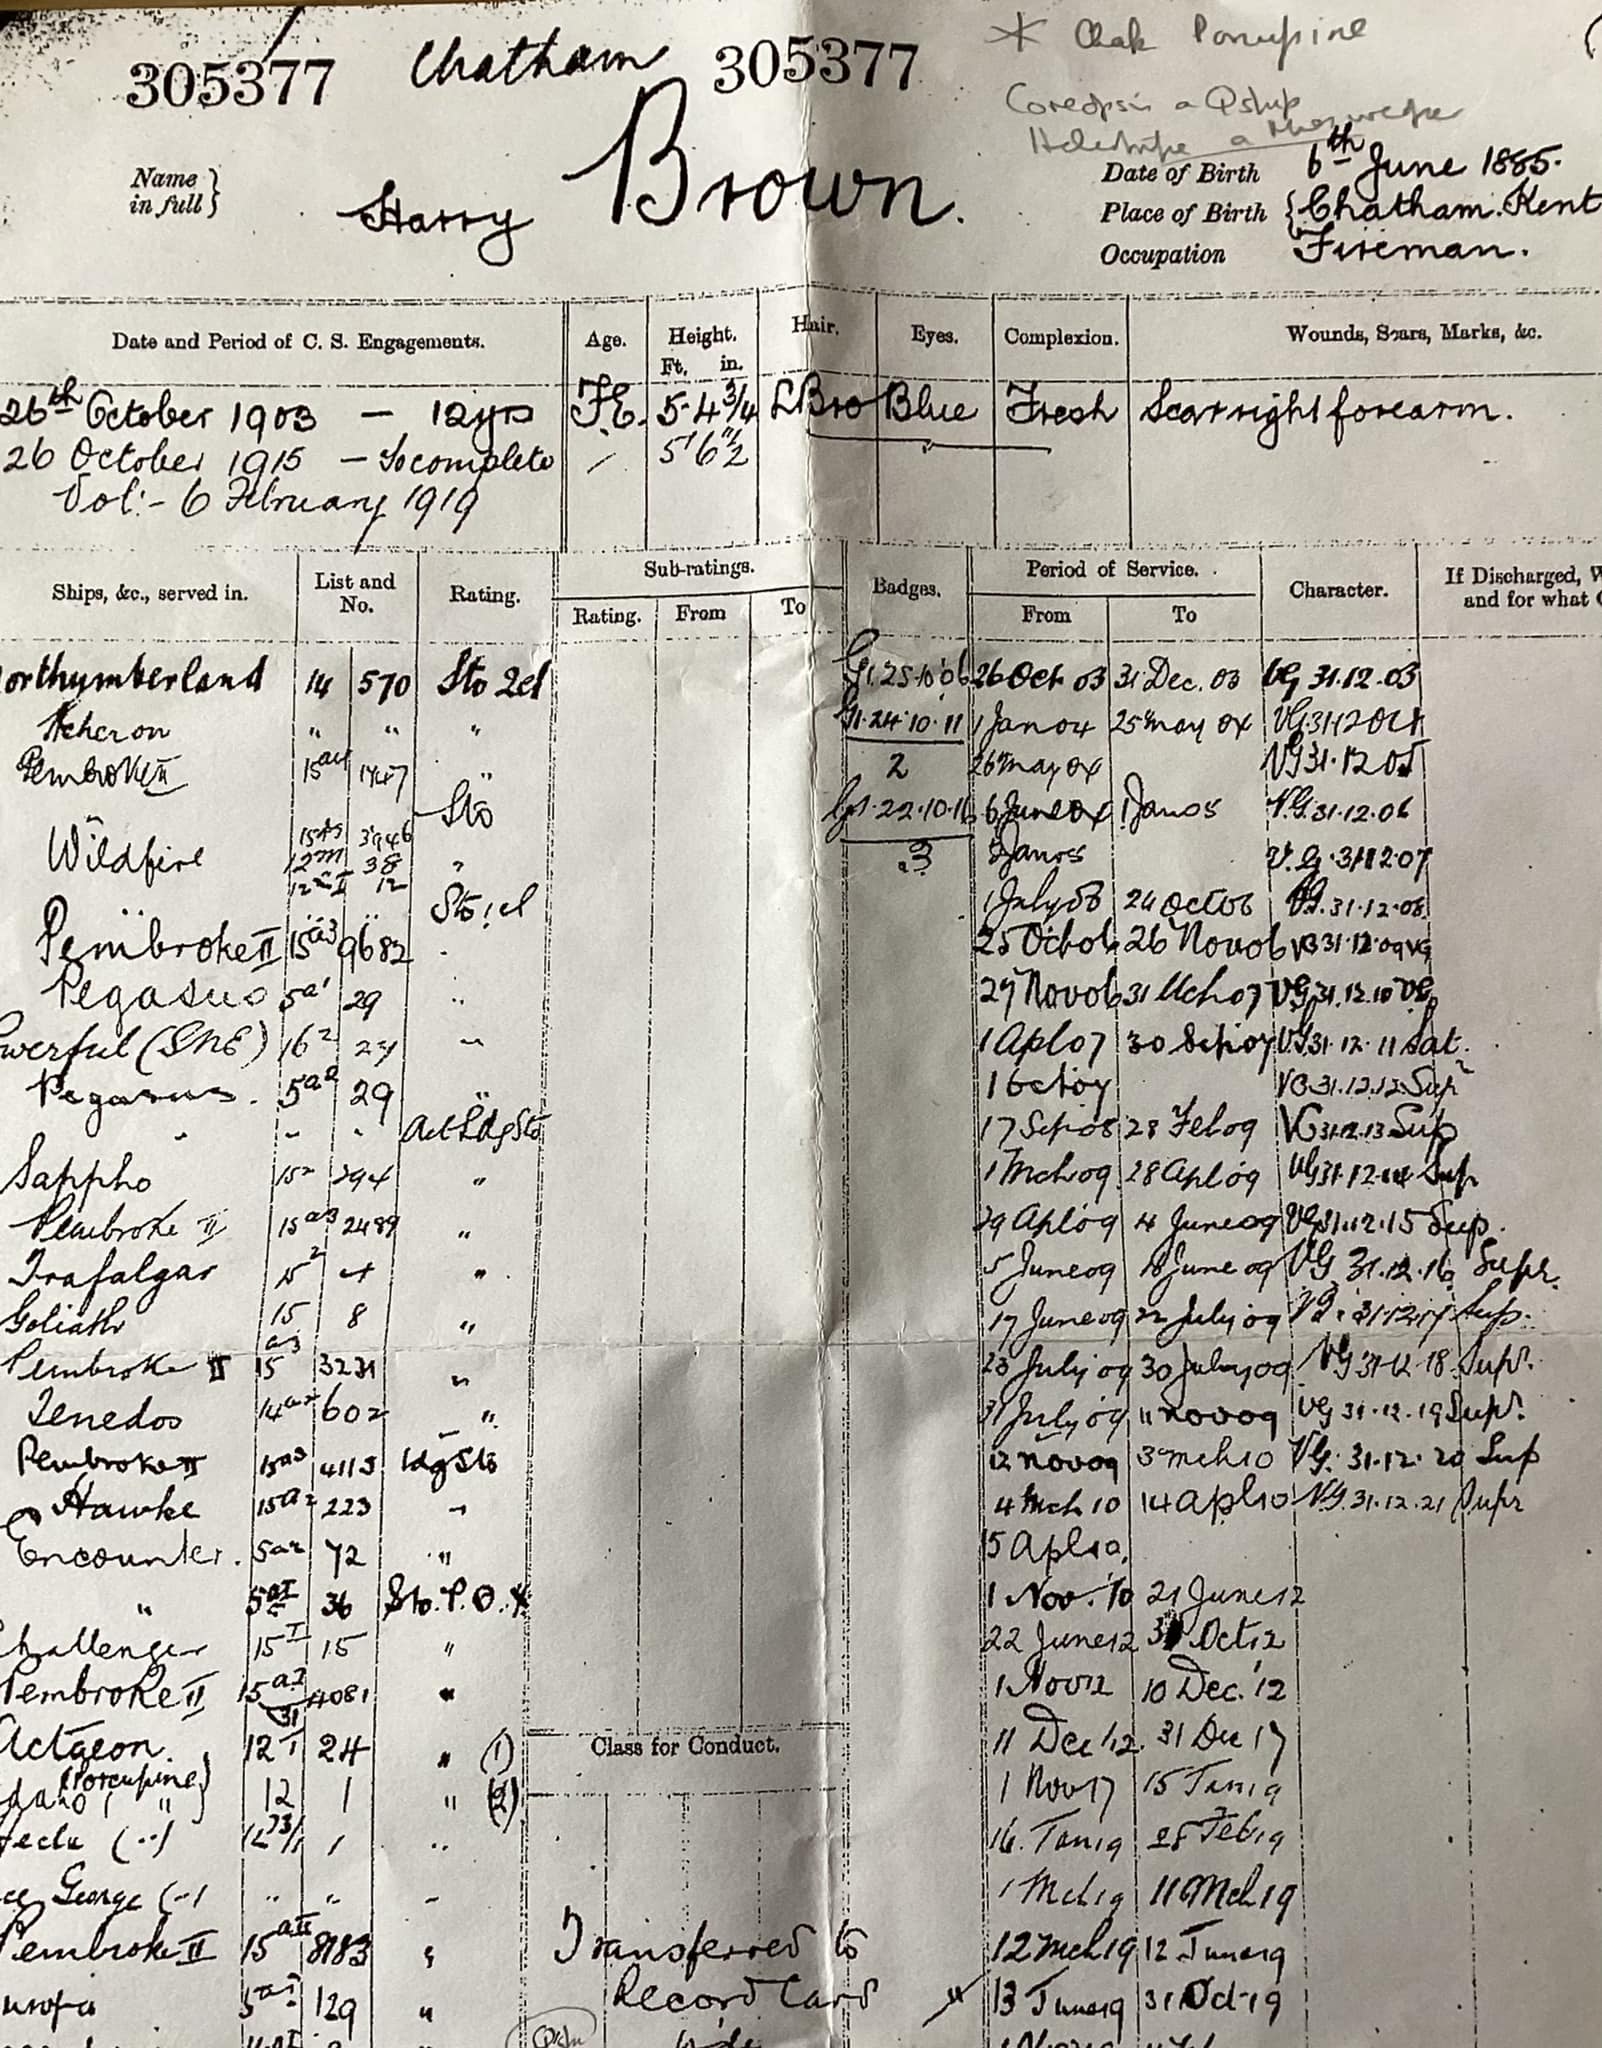 305377 Chatham 305377
* Chak Porcupine
Coreopsis a Qship
a
Name in full } Harry Brown.
Date of Birth 6th June 1885.
Place of Birth { Chatham. Kent
Occupation Fireman.
Date and Period of C. S. Engagements. Age. Height. Ft. in. Hair. Eyes. Complexion. Wounds, Scars, Marks, &c.
26th October 1903 — 12yrs F.E. 5-4 3/4 LBro Blue Fresh Scar right forearm.
26 October 1915 — To complete / 5'6½" "
Vol:- 6 February 1919
Ships, &c., served in. List and No. Rating. Sub-ratings. Badges. Period of Service. Character. If Discharged, W
Rating. From To From To and for what C
orthumberland 14 570 Sto 2cl G1.25.10.06 26 Oct 03 31 Dec. 03 VG 31.12.03
Acheron " " " G1.24.10.11 1 Jan 04 25 May 04 VG 31.12.04
Pembroke II 15a4 1747 " 2 26 May 04 VG 31.12.05
Sto G1.22.10.16 6 June 04 1 Jan 05 VG.31.12.06
Wildfire 12m 38 " 3 2 Jan 05 V.G.31.12.07
12 Sto 1cl 1 July 06 24 Oct 06 VG.31.12.08
Pembroke II 15a3 9682 25 Oct 06 26 Nov 06 VG 31.12.09 VG
Pegasus 5a1 29 " 27 Nov 06 31 Mch 07 VG 31.12.10 VG
werful (SNE) 16² 27 " 1 Apl 07 30 Sep 07 VG 31.12.11 Sat.
Pegasus. 5a2 29 " 1 Oct 07 VG 31.12.12 Supr
" " " Act Ldg Sto 17 Sep 08 28 Feb 09 VG 31.12.13 Sup
Sappho 15² 294 " 1 Mch 09 28 Apl 09 VG 31.12.14 Sup
Pembroke II 15a3 2489 " 29 Apl 09 4 June 09 VG 31.12.15 Sup.
Trafalgar 15² 4 " 5 June 09 16 June 09 VG 31.12.16 Supr.
Goliath 15 8 " 17 June 09 22 July 09 VG. 31.12.17 Sup.
Pembroke II 15a3 3231 " 23 July 09 30 July 09 VG 31.12.18 Supr.
Tenedos 14a2 602 " 31 July 09 11 Nov 09 VG 31.12.19 Supr.
Pembroke II 15a3 4115 Ldg Sto 12 Nov 09 3 Mch 10 VG. 31.12.20 Sup
Hawke 15a2 223 " 4 Mch 10 14 Apl 10 VG.31.12.21 Supr
Encounter. 5a2 72 " 15 Apl 10.
" 5 36 Sto. P. O. 1 Nov. 10 21 June 12
hallenger 15I 15 " 22 June 12 31 Oct 12
Pembroke II 15a2 4081 " 1 Nov 12 10 Dec. '12
31
Actaeon. 12I 24 " (1) Class for Conduct. 11 Dec 12. 31 Dec 17
(Porcupine) 12 1 " (2) 1 Nov 17 15 Jan 19
Hecla (") 1 " 16. Jan 19 28 Feb 19
ce George (") " " " 1 Mch 19 11 Mch 19
Pembroke II 15 8183 " Transferred to 12 Mch 19 12 June 19
uropa 5 129 " Record Card 13 June 19 31 Oct 19